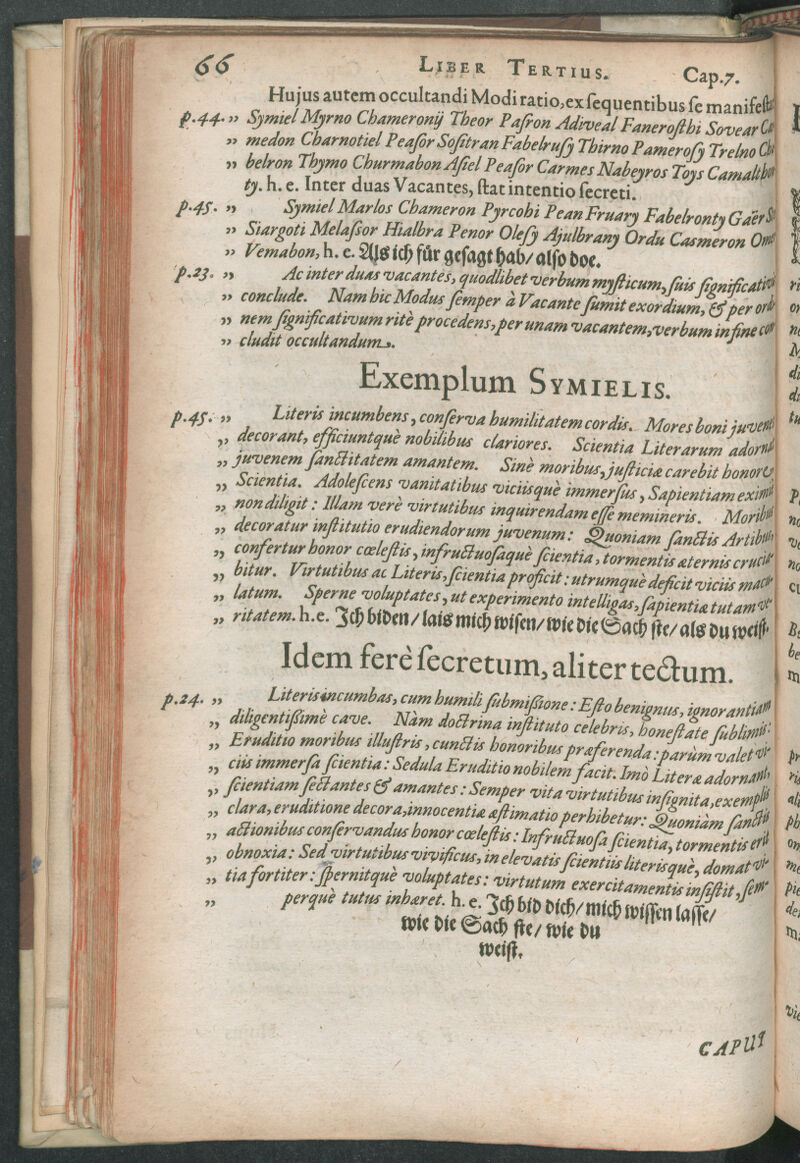 66 LIBER TERTIUS. Cap.7.
Hujus autem occultandi Modi ratio, ex sequentibus se manifesta
p.44. „ Symiel Myrno Chameronij Theor Pasron Adiveal Fanerosthi Sovear
„ medon Charnotiel Peasor Sositran Fabelrusy Thirno Pamerosy Trelno
„ belron Thymo Churmabon Asiel Peasor Carmes Nabeyros Toys Camalthon
ty. h. e. Inter duas Vacantes, stat intentio secreti.
p.45. „ Symiel Marlos Chameron Pyrcohi Pean Fruary Fabelronty Gaër
„ Siargoti Melassor Hialbra Penor Olesy Ajulbrany Ordu Casmeron
„ Vemabon, h. e. Als ich für gesagt hab/ also doe.
p.23. „ Ac inter duas vacantes, quodlibet verbum mysticum, suis significativis
„ conclude. Nam hic Modus semper à Vacante sumit exordium, & per ordi
„ nem significativum ritè procedens, per unam vacantem, verbum in fine con
„ cludit occultandum.
Exemplum SYMIELIS.
p.45. „ Literis incumbens, conserva humilitatem cordis. Mores boni juvenem
„ decorant, efficiuntquè nobilibus clariores. Scientia Literarum adornat
„ juvenem sanctitatem amantem. Sinè moribus, justiciæ carebit honore
„ Scientia. Adolescens vanitatibus viciisquè immersus, Sapientiam eximiam
„ non diligit: Illam verè virtutibus inquirendam esse memineris. Moribus
„ decoratur institutio erudiendorum juvenum: Quoniam sanctis Artibus
„ confertur honor cœlestis, infructuosaquè scientia, tormentis æternis crucia
„ bitur. Virtutibus ac Literis, scientia proficit: utrumquè deficit viciis macu
„ latum. Sperne voluptates, ut experimento intelligas, sapientiæ tutam ve-
„ ritatem. h.e. Ich biden/ lais mich wisen/ wie die Sach ste/ als du weist.
Idem ferè secretum, aliter tectum.
p.24. „ Literis incumbas, cum humili submißione: Esto benignus, ignorantiam
„ diligentißimè cave. Nàm doctrina instituto celebris, honestate sublimis:
„ Eruditio moribus illustris, cunctis honoribus præferenda: parùm valet vi-
„ ciis immersa scientia: Sedula Eruditio nobilem facit. Imò Literæ adornant,
„ scientiam sectantes & amantes: Semper vita virtutibus insignita, exemplis
„ clara, eruditione decora, innocentiæ æstimatio perhibetur: Quoniàm sanctis
„ actionibus conservandus honor cœlestis: Infructuosa scientia, tormentis erit
„ obnoxia: Sed virtutibus vivificus, in elevatis scientiis literisquè, domat vi-
„ tia fortiter: spernitquè voluptates: virtutum exercitamentis insistit, sem-
„ perquè tutus inhæret. h. e. Ich bid dich/ mich wissen lasse/
wie die Sach ste/ wie du
weist.
CAPUT